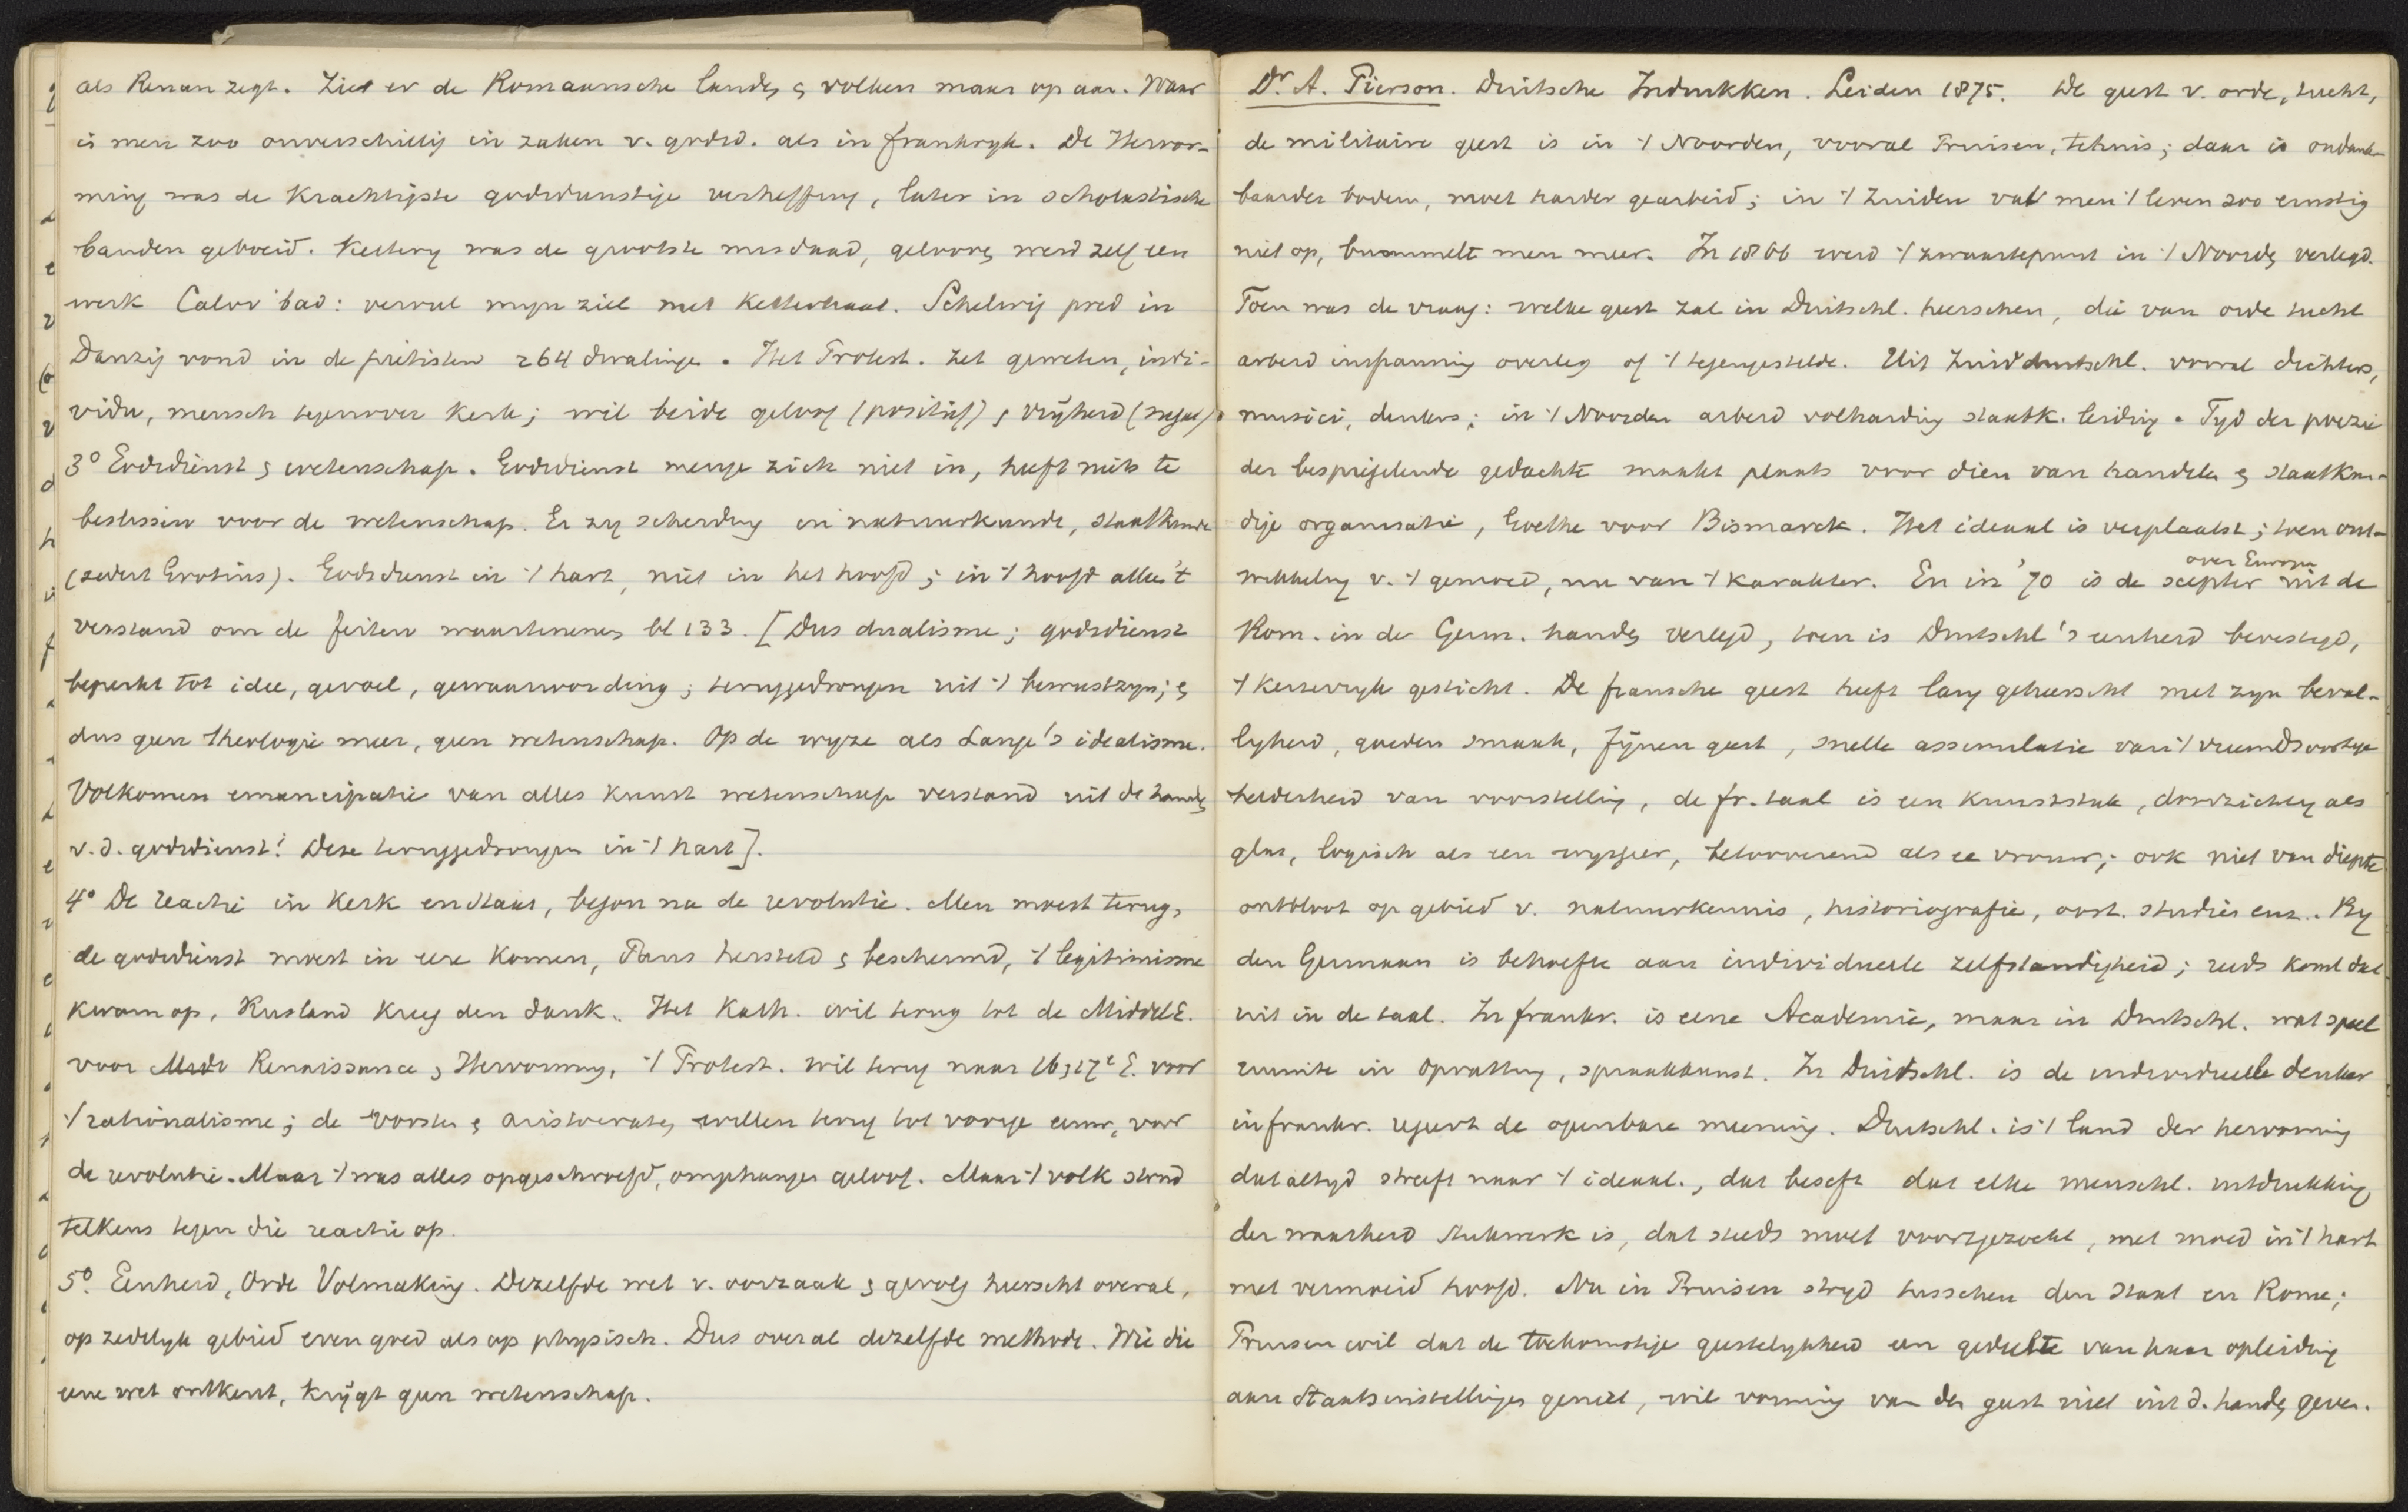 als Renan zegt. Ziet er de Romaansche landen & volken maar op aan. Waar
is men zoo onverschillig in zaken v. godsd. als in frankryk. De Hervor-
ming was de krachtigste godsdienstige verheffing, later in scholastische
banden geboeid. Kettery was de grootste misdaad, gelooven werd zelf een
werk Calov bad: vervul myn ziel met ketterhaat. Schelwig pred in
Danzig vond in de piëtisten 264 dwalingen. Het Protest. zet geweten, indi-
vidu, mensch tegenover kerk; wil beide geloof (positief) & vrijheid (negat).
3° Godsdienst & wetenschap. Godsdienst menge zich niet in, heeft niets te
beslissen voor de wetenschap. Er zy scheiding in natuurkunde, staatkunde
(sedert Grotius). Godsdienst in 't hart, niet in het hoofd; in 't hoofd alleen 't
verstand om de feiten waartenemen bl 133. [Dus dualisme; godsdienst
beperkt tot idee, gevoel, gewaarwording; teruggedrongen uit 't bewustzyn; &
dus geen theologie meer, geen wetenschap. Op de wyze als Lange's idealisme.
Volkomen emancipatie van alles kunst wetenschap verstand uit de handen
v. d. godsdienst! Deze teruggedrongen in 't hart].
4° De reactie in kerk en staat, begon na de revolutie. Men moest terug,
de godsdienst moest in eere komen, Paus hersteld & beschermd, 't legitimisme
kwam op, Rusland kreeg den dank. Het Kath. wil terug tot de MiddelE.
voor Renaissance & Hervorming, 't Protest. wil terug naar 16 & 17e E. voor
't rationalisme; de vorsten & aristocraten willen terug tot vorige eeuw, voor
de revolutie. Maar 't was alles opgeschroefd, omgehangen geloof. Maar 't volk stond
telkens tegen die reactie op.
5°. Eenheid, Orde Volmaking. Dezelfde wet v. oorzaak & gevolg heerscht overal,
op zedelyk gebied even goed als op physisch. Dus overal dezelfde methode. Wie die
eene wet ontkent, krijgt geen wetenschap.
Dr. A. Pierson. Duitsche Indrukken. Leiden 1875. De geest v. orde, tucht,
de militaire geest is in 't Noorden, vooral Pruisen, tehuis; daar is ondank-
baarder bodem, moet harder gearbeid; in 't Zuiden vat men 't leven zoo ernstig
niet op, bummelt men meer. In 1866 werd 't zwaartepunt in 't Noorden verlegd.
Toen was de vraag: welke geest zal in Duitschl. heerschen, die van orde tucht
arbeid inspanning overleg of 't tegengestelde. Uit Zuidduitschl. vooral dichters,
musici, denkers; in 't Noorden arbeid volharding staatk. leiding. Tyd der poezie
der bespiegelende gedachte maakt plaats voor dien van handelen & staatkun-
dige organisatie, Goethe voor Bismarck. Het ideaal is verplaatst; toen ont-
wikkeling v. 't gemoed, nu van 't karakter. En in '70 is de scepter over Europa uit de
Rom. in de Germ. handen verlegd, toen is Duitschl's eenheid bevestigd,
't keizerryk gesticht. De fransche geest heeft lang geheerscht met zyn beval-
lyheid, goeden smaak, fijnen geest, snelle assimulatie van 't vreemdsoortige
helderheid van voorstelling, de fr. taal is een kunststuk, doorzichtig als
glas, logisch als een wysgeer, betooverend als ee vrouw; ook niet van diepte
ontbloot op gebied v. natuurkennis, historiografie, oost. studiën enz. By
den Germaan is behoefte aan individueele zelfstandigheid; reeds komt dat
uit in de taal. In frankr. is eene Academie, maar in Duitschl. wat speel
ruimte in opvatting, spraakkunst. In Duitschl. is de individueele denker
in frankr. regeert de openbare meening. Duitschl. is 't land der hervorming
dat altyd streeft naar 't ideaal., dat beseft dat elke menschl. uitdrukking
der waarheid stukwerk is, dat steeds moet voortgezocht, met moed in 't hart
met vermoeid hoofd. Nu in Pruisen stryd tusschen den staat en Rome;
Pruisen wil dat de toekomstige geestelykheid een gedeelte van haar opleiding
aan Staatsinstellingen geniet, wil vorming van den geest niet uit d. handen geven.